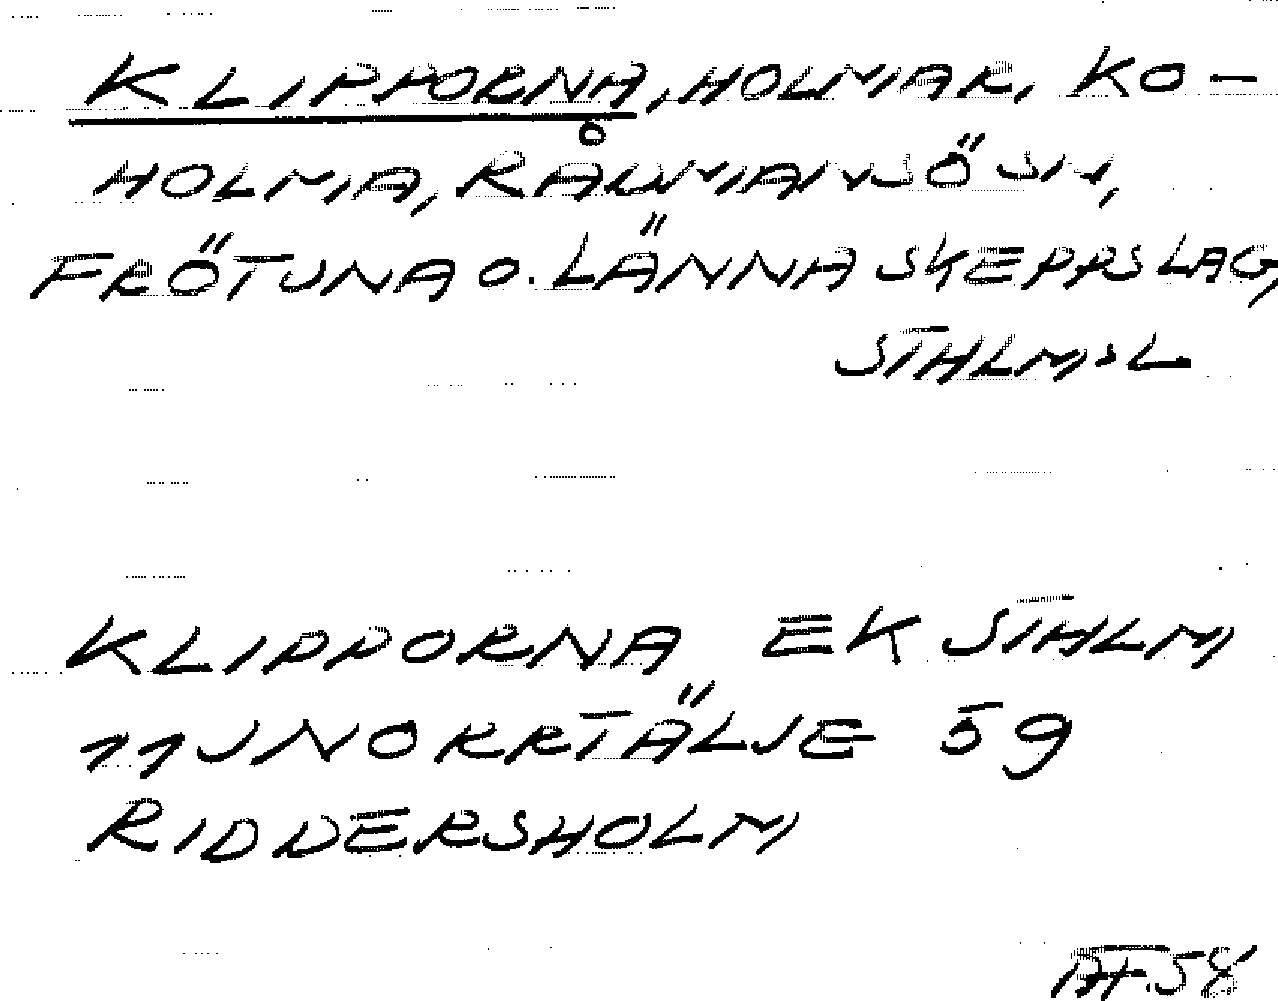 KLIPPORNA, HOLMAR, KO-
HOLMA, RÅDMANSÖ SN,
FRÖTUNA O. LÄNNA SKEPPSLAG,
STHLMS L
KLIPPORNA EK STHLM
11J NORRTÄLJE 59
RIDDERSHOLM